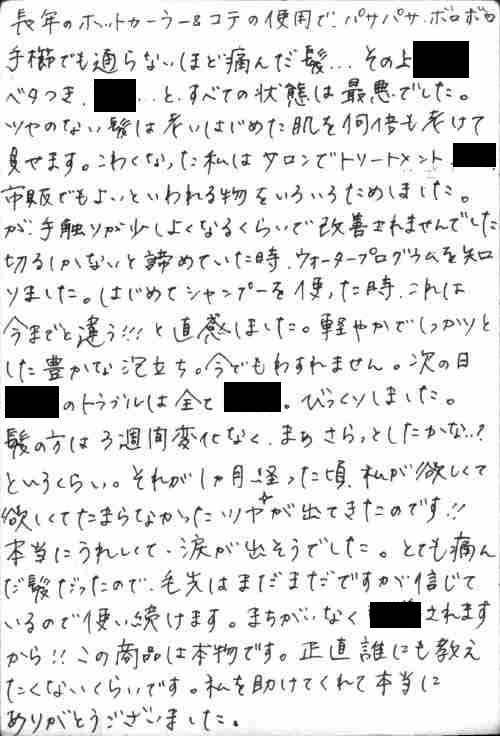 長年のホットカーラー&コテの使用で、パサパサ、ボロボロ
手櫛でも通らないほど痛んだ髪…その上
ベタつき、…と、すべての状態は最悪でした。
ツヤのない髪は老いはじめた肌を何倍も老けて
見せます。こわくなった私はサロンでトリートメント、
市販でもよいといわれる物をいろいろためしました。
が、手触りが少しよくなるくらいで改善されませんでした
切るしかないと諦めていた時、ウォータープログラムを知
りました。はじめてシャンプーを使った時、これは
今までと違う!!!と直感しました。軽やかでしっかりと
した豊かな泡立ち。今でもわすれません。次の日
のトラブルは全て。びっくりしました。
髪の方は3週間変化なく、まあさらっとしたかな..?
というくらい。それが1ヵ月経った頃、私が欲しくて
欲しくてたまらなかったツヤが出てきたのです!!
本当にうれしくて、涙が出そうでした。とても痛ん
だ髪だったので、毛先はまだまだですが信じて
いるので使い続けます。まちがいなくされます
から!!この商品は本物です。正直誰にも教え
たくないくらいです。私を助けてくれて本当に
ありがとうございました。